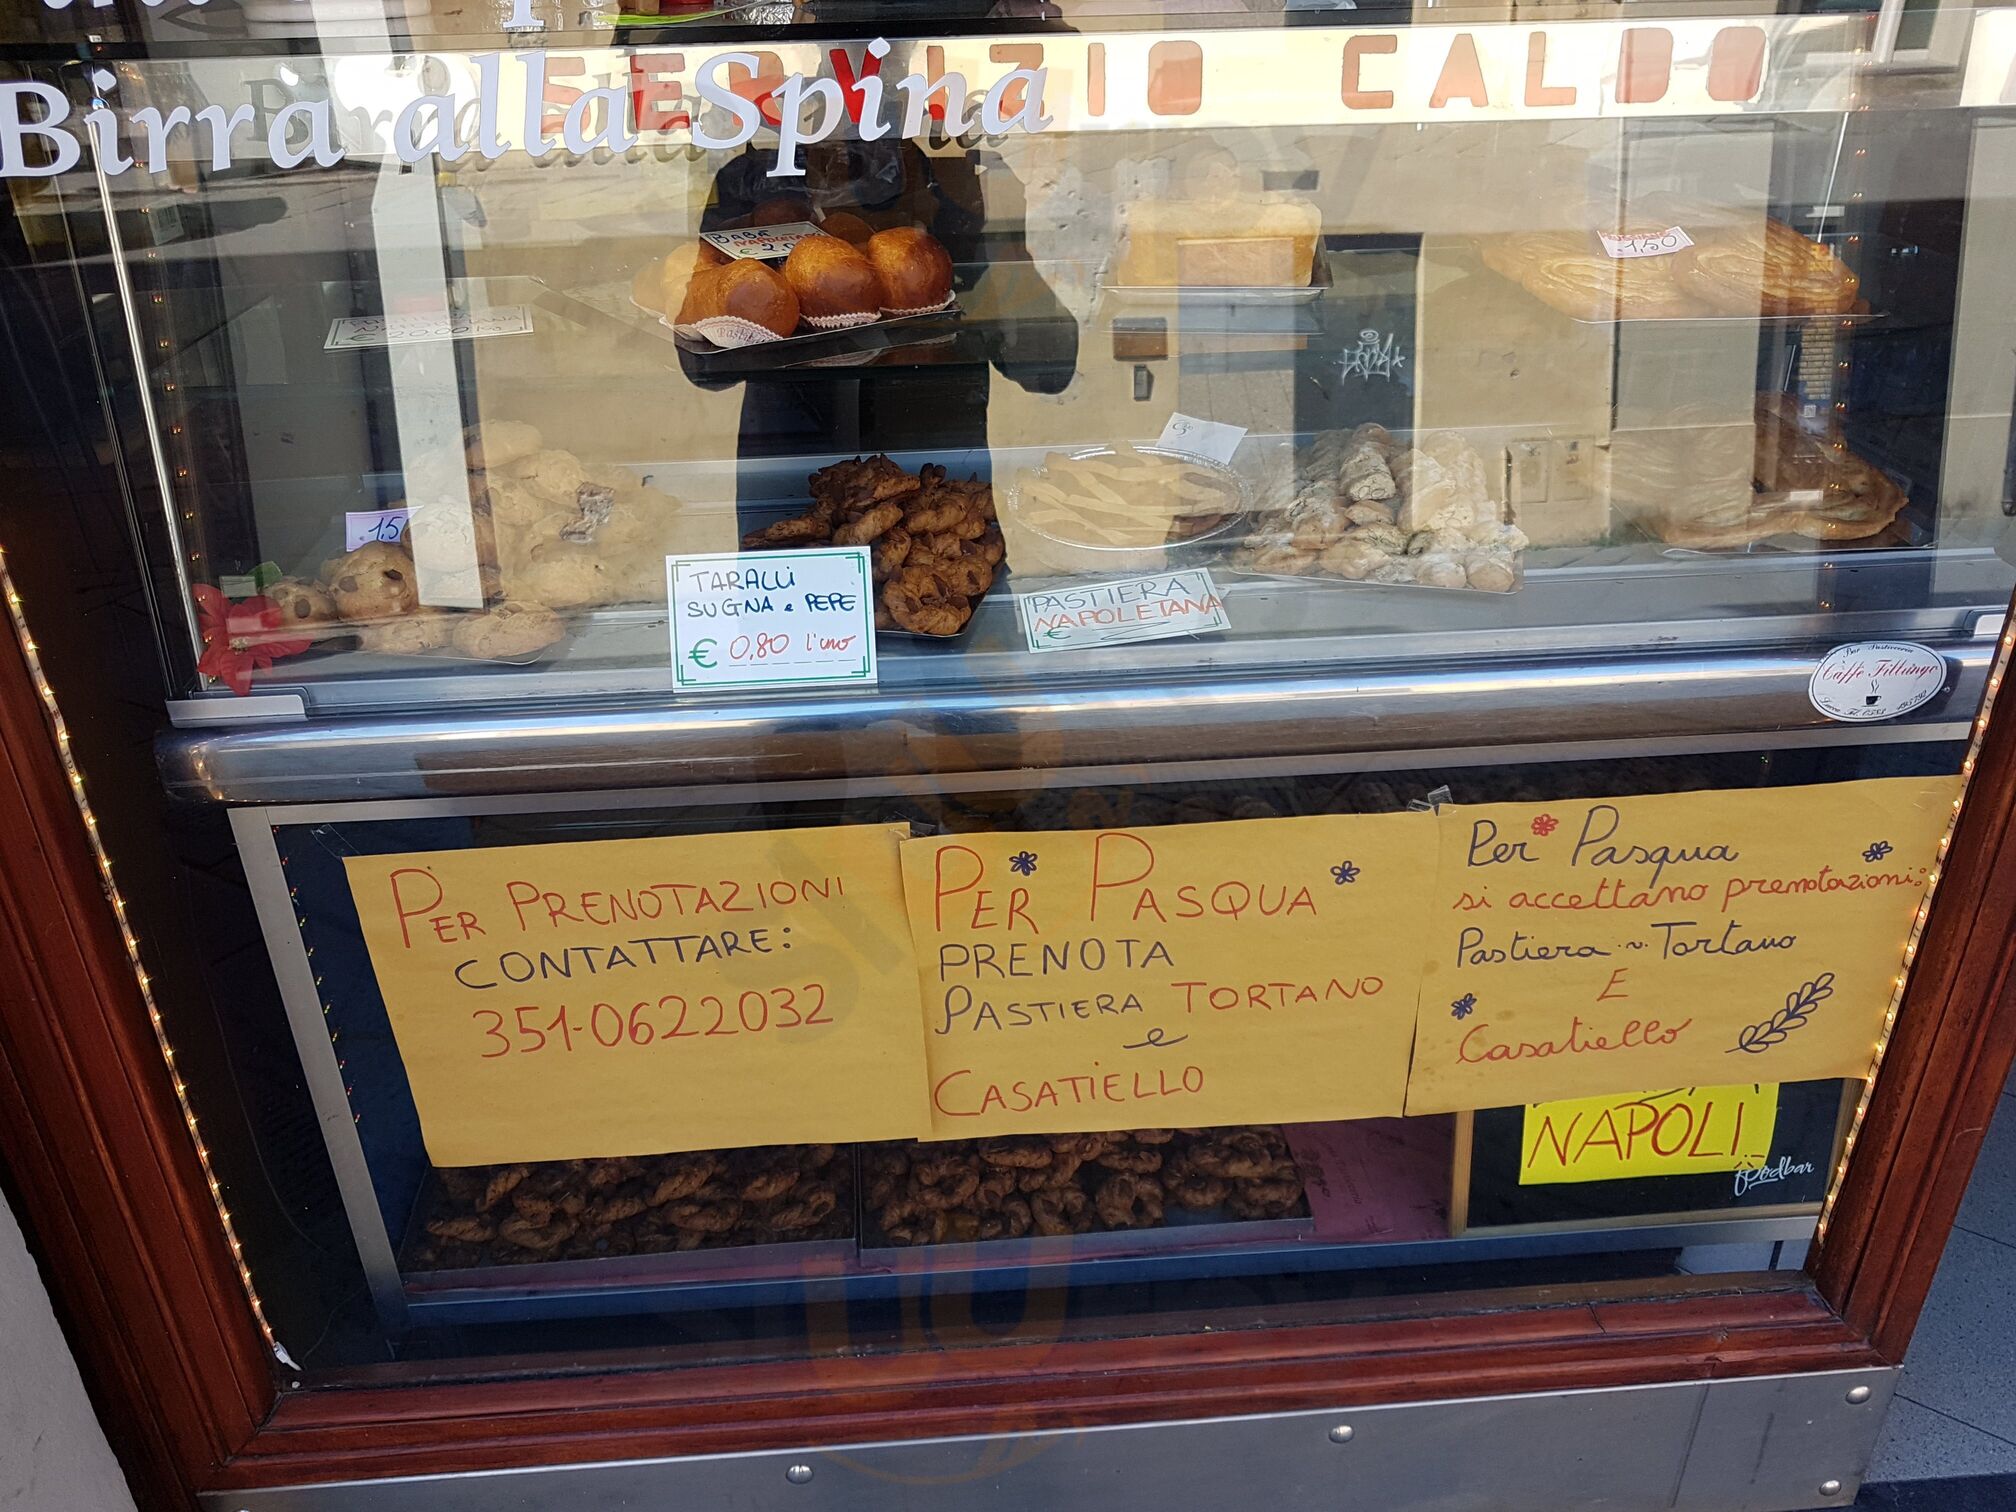 SERVIZIO CALDO
Birra alla Spina
BABÀ
NAPOLETANO
€ 2,
1,50
€ 20,00 Kg
1,5
TARALLI
SUGNA e PEPE
€ 0,80 l'uno
PASTIERA
NAPOLETANA
€
Bar Pasticceria
Caffè Fillungo
PER PRENOTAZIONI
CONTATTARE:
351-0622032
PER PASQUA
PRENOTA
PASTIERA TORTANO
e
CASATIELLO
Per Pasqua
si accettano prenotazioni:
Pastiera ~ Tortano
E
Casatiello
NAPOLI
foodbar